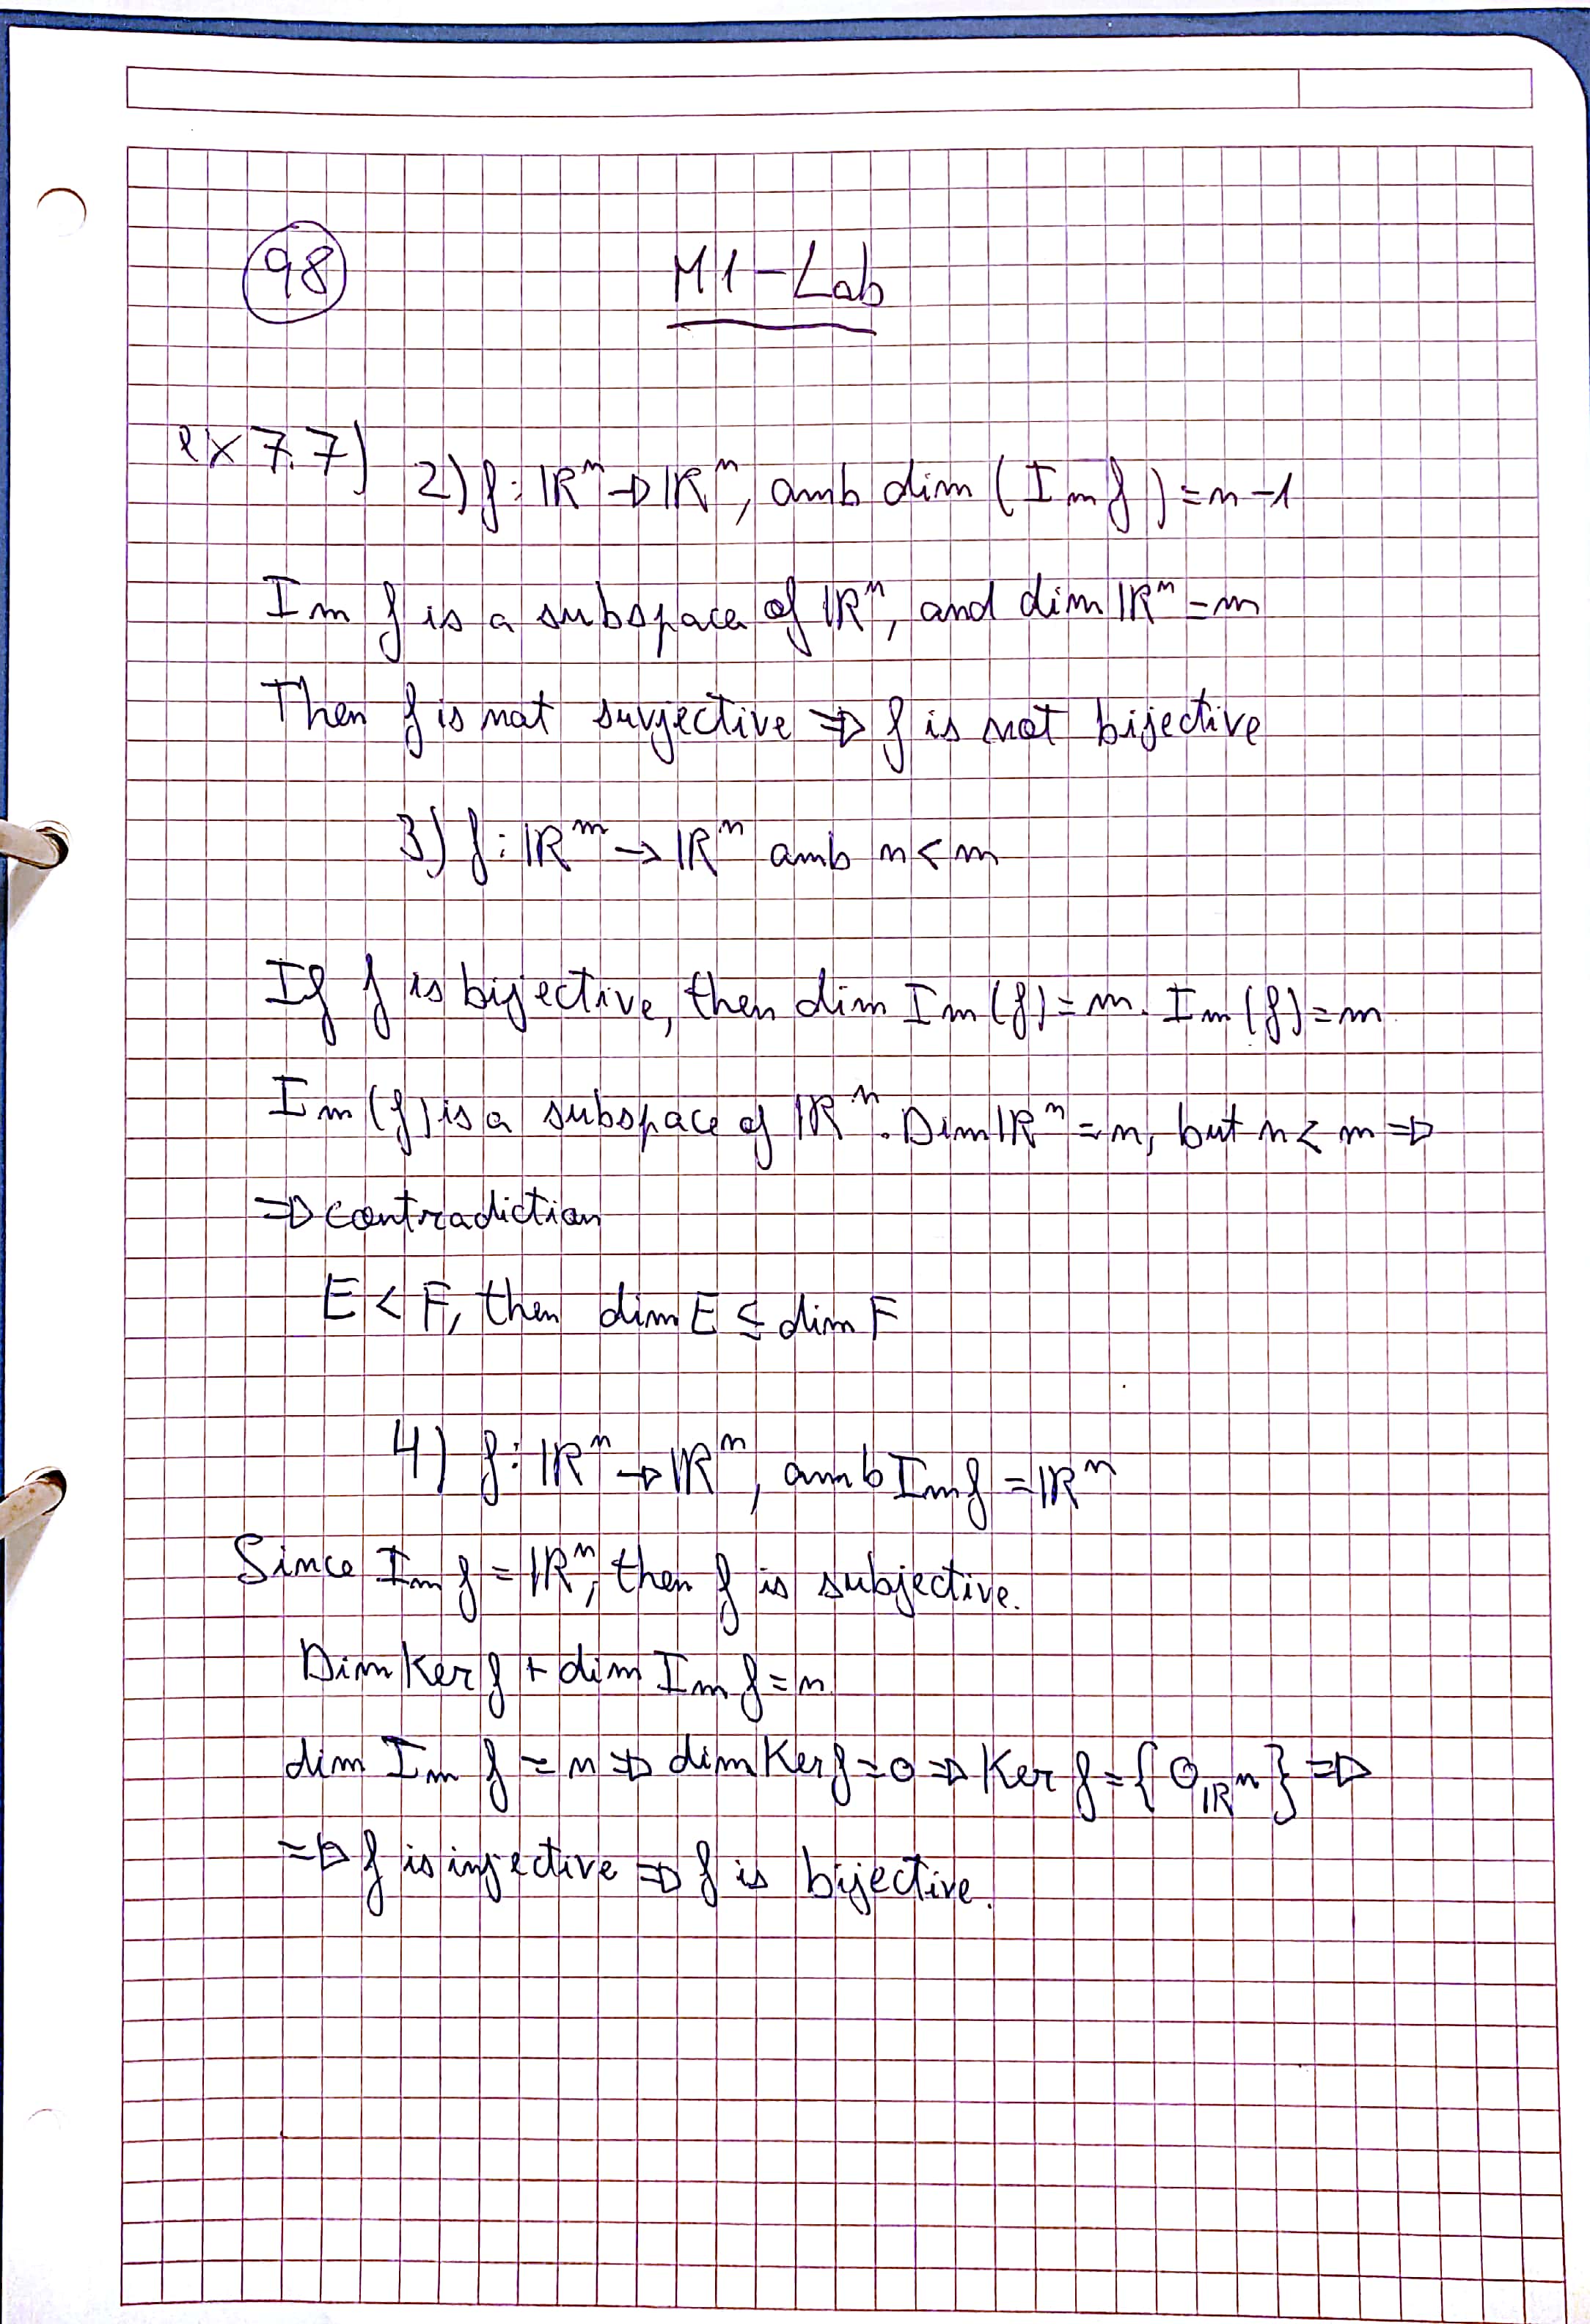 98
M1-Lab
ex 7.7) 2) f: ℝⁿ → ℝⁿ, amb dim (Im f) = n-1
Im f is a subspace of ℝⁿ, and dim ℝⁿ = n
Then f is not survjective ⇒ f is not bijective
3) f: ℝᵐ → ℝⁿ amb n < m
If f is bijective, then dim Im (f) = m. Im (f) = m
Im (f) is a subspace of ℝⁿ. Dim ℝⁿ = n, but n < m ⇒
⇒ contradiction
E < F, then dim E ≤ dim F
4) f: ℝⁿ → ℝⁿ, amb Im f = ℝⁿ
Since Im f = ℝⁿ, then f is subjective.
Dim Ker f + dim Im f = n
dim Im f = n ⇒ dim Ker f = 0 ⇒ Ker f = {0_ℝⁿ} ⇒
⇒ f is injective ⇒ f is bijective.